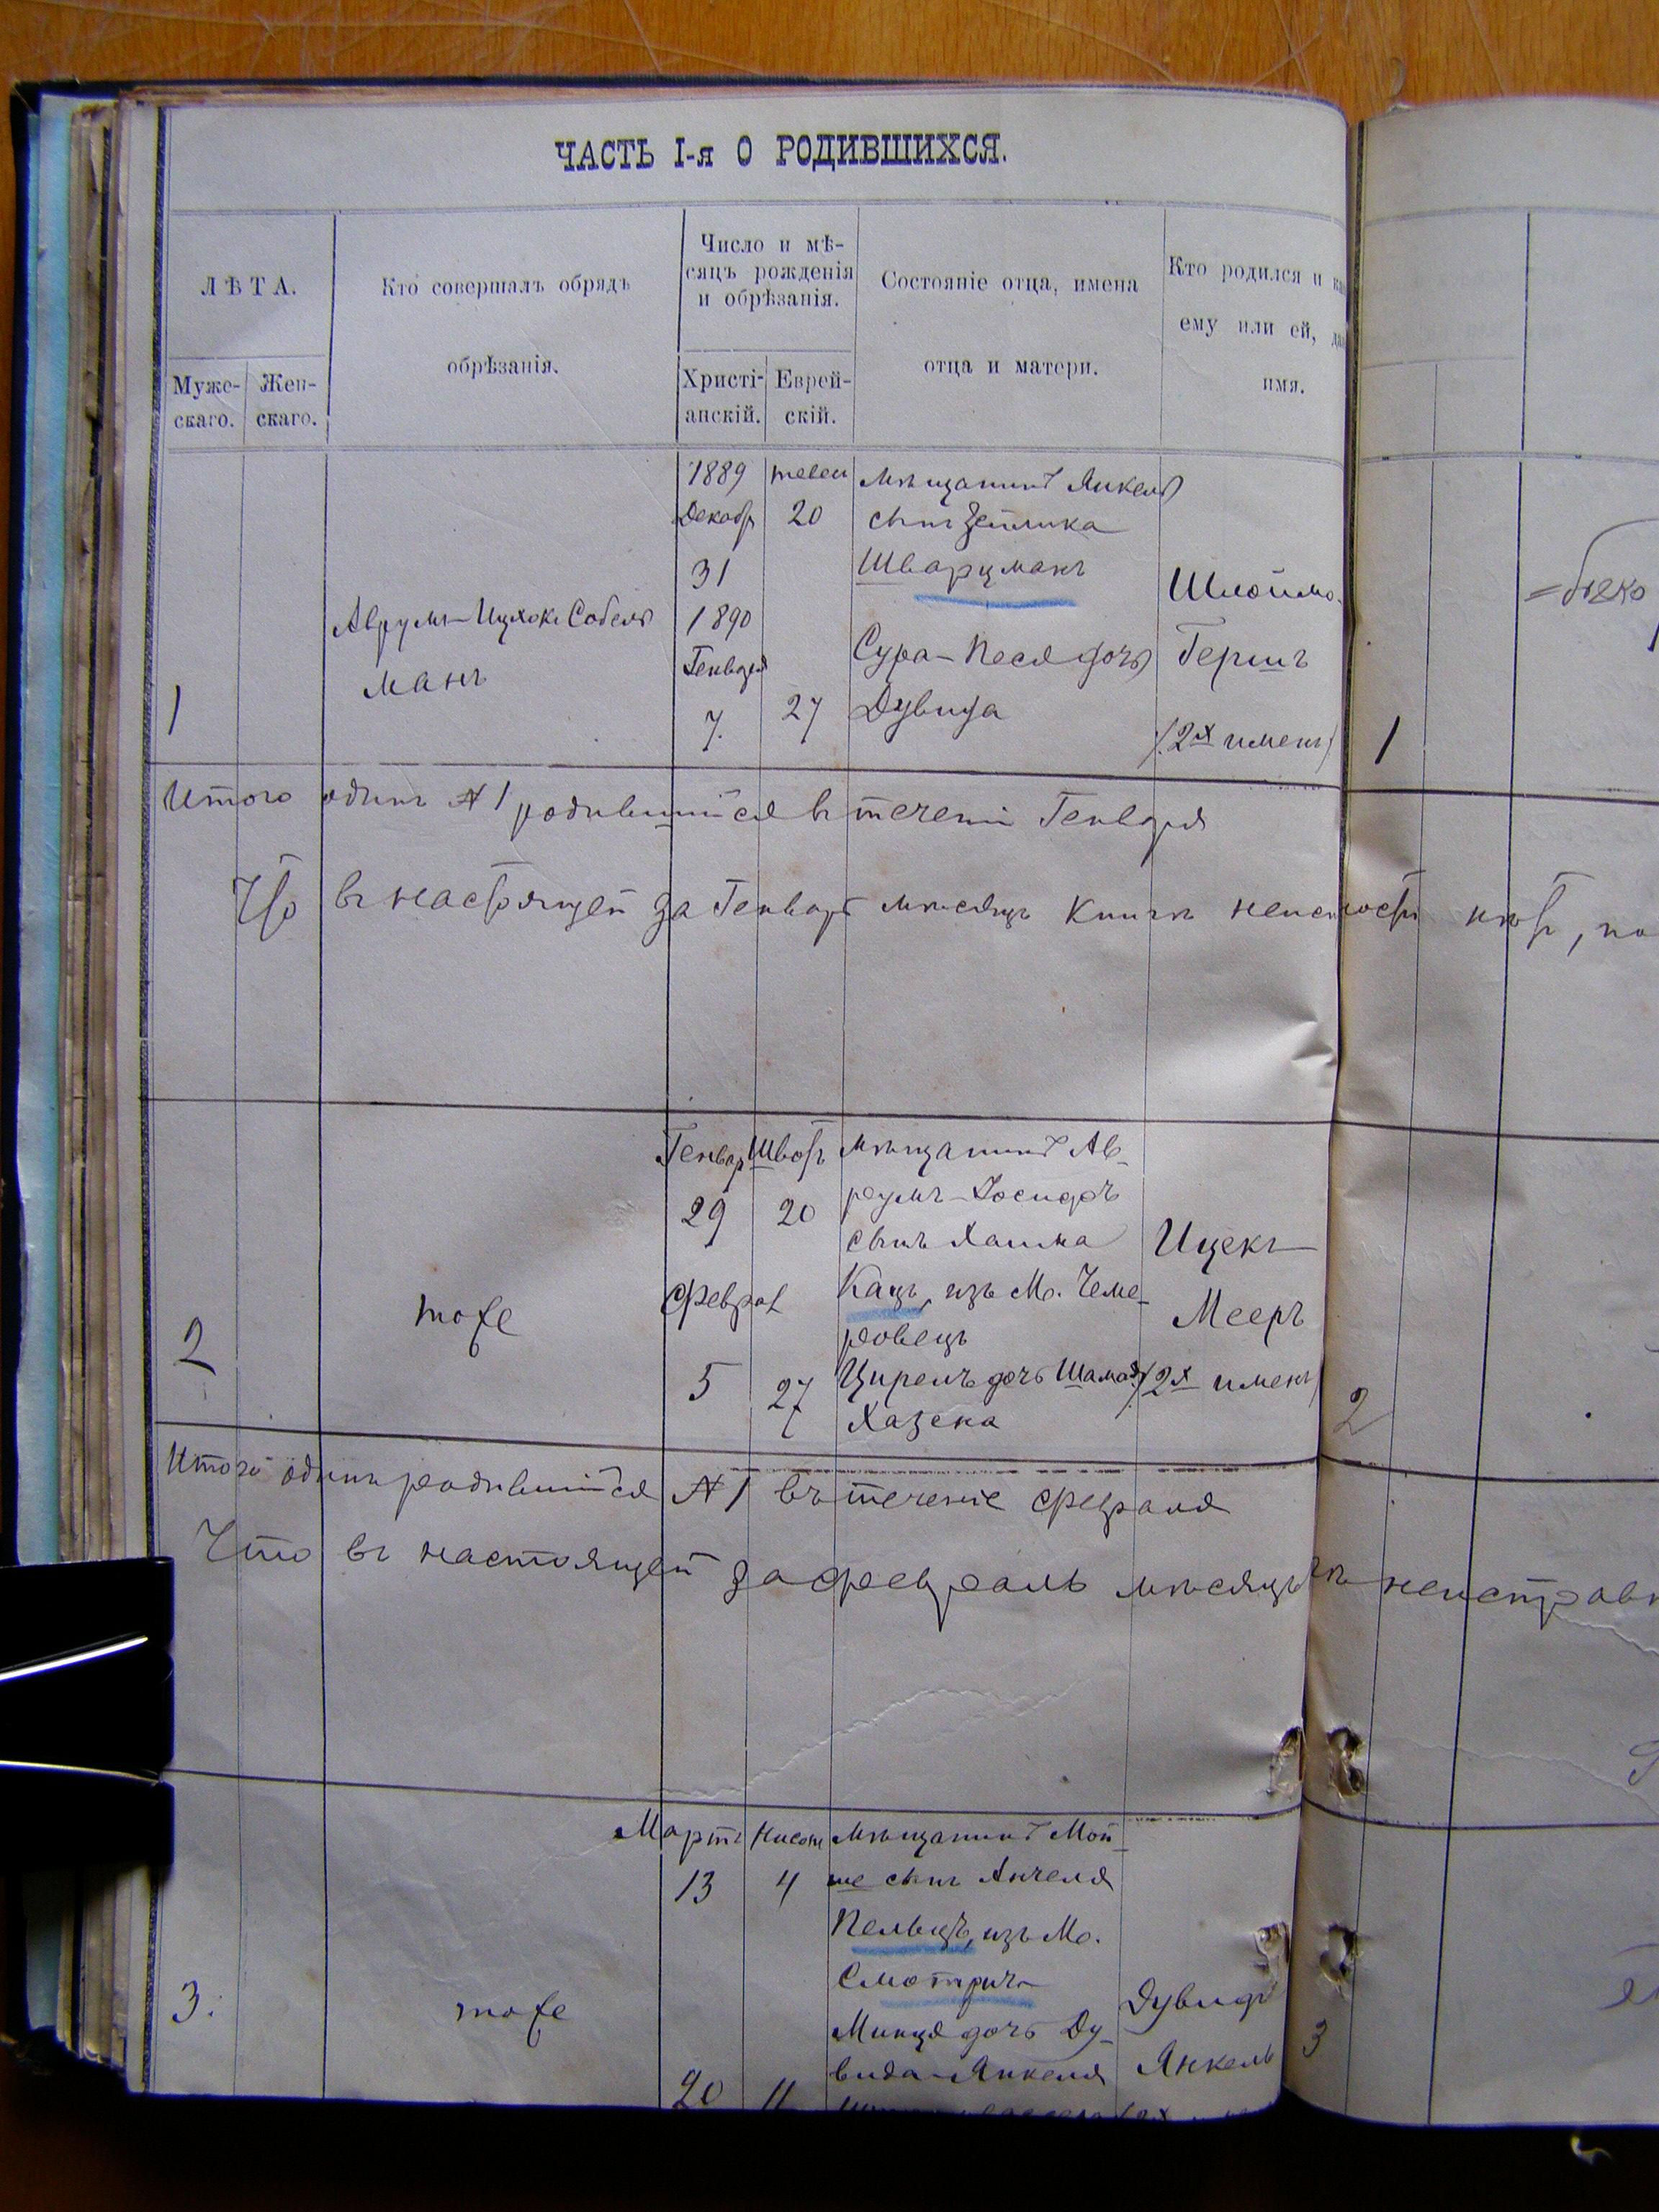 ЧАСТЬ I-я О РОДИВШИХСЯ.
ЛѢТА.
Муже-
скаго.
Жен-
скаго.
Кто совершалъ обрядъ
обрѣзанія.
Число и мѣ-
сяцъ рожденія
и обрѣзанія.
Христі-
анскій.
Еврей-
скій.
Состояніе отца, имена
отца и матери.
Кто родился и
ему или ей,
имя.
1
Аврумъ-Ицхокъ Собель
манъ
1889
Декабр
31
1890
Генваря
7.
тевеи
20
27
Мѣщанинъ Янкель
сынъ Зейлика
Шварцманъ
Сура-Песя дочь
Дувида
Шлойма-
Гершъ
(2х именъ)
1
Итого одинъ № 1 родившійся въ теченіи Генваря
Что въ настоящей за Генварь мѣсяцъ книгѣ нѣтъ, по
2
тоже
Генвар
29
Феврал
5
Шватъ
20
27
Мѣщанинъ Ав-
румъ-Іосифъ
сынъ Хаима
Кацъ, изъ М. Чеме-
ровецъ
Цирель дочь
Хазена
Ицекъ-
Мееръ
(2х именъ)
2
Итого одинъ родившійся № 1 въ теченіе Февраля
Что въ настоящей за февраль мѣсяцъ неисправн
3.
тоже
Мартъ
13
20
Нисонъ
4
11
Мѣщанинъ Мой-
ше сынъ Анчеля
Пельцъ, изъ М.
Смотрича
Минця дочь Ду-
вида-Янкеля
Дувидъ
Янкель
3